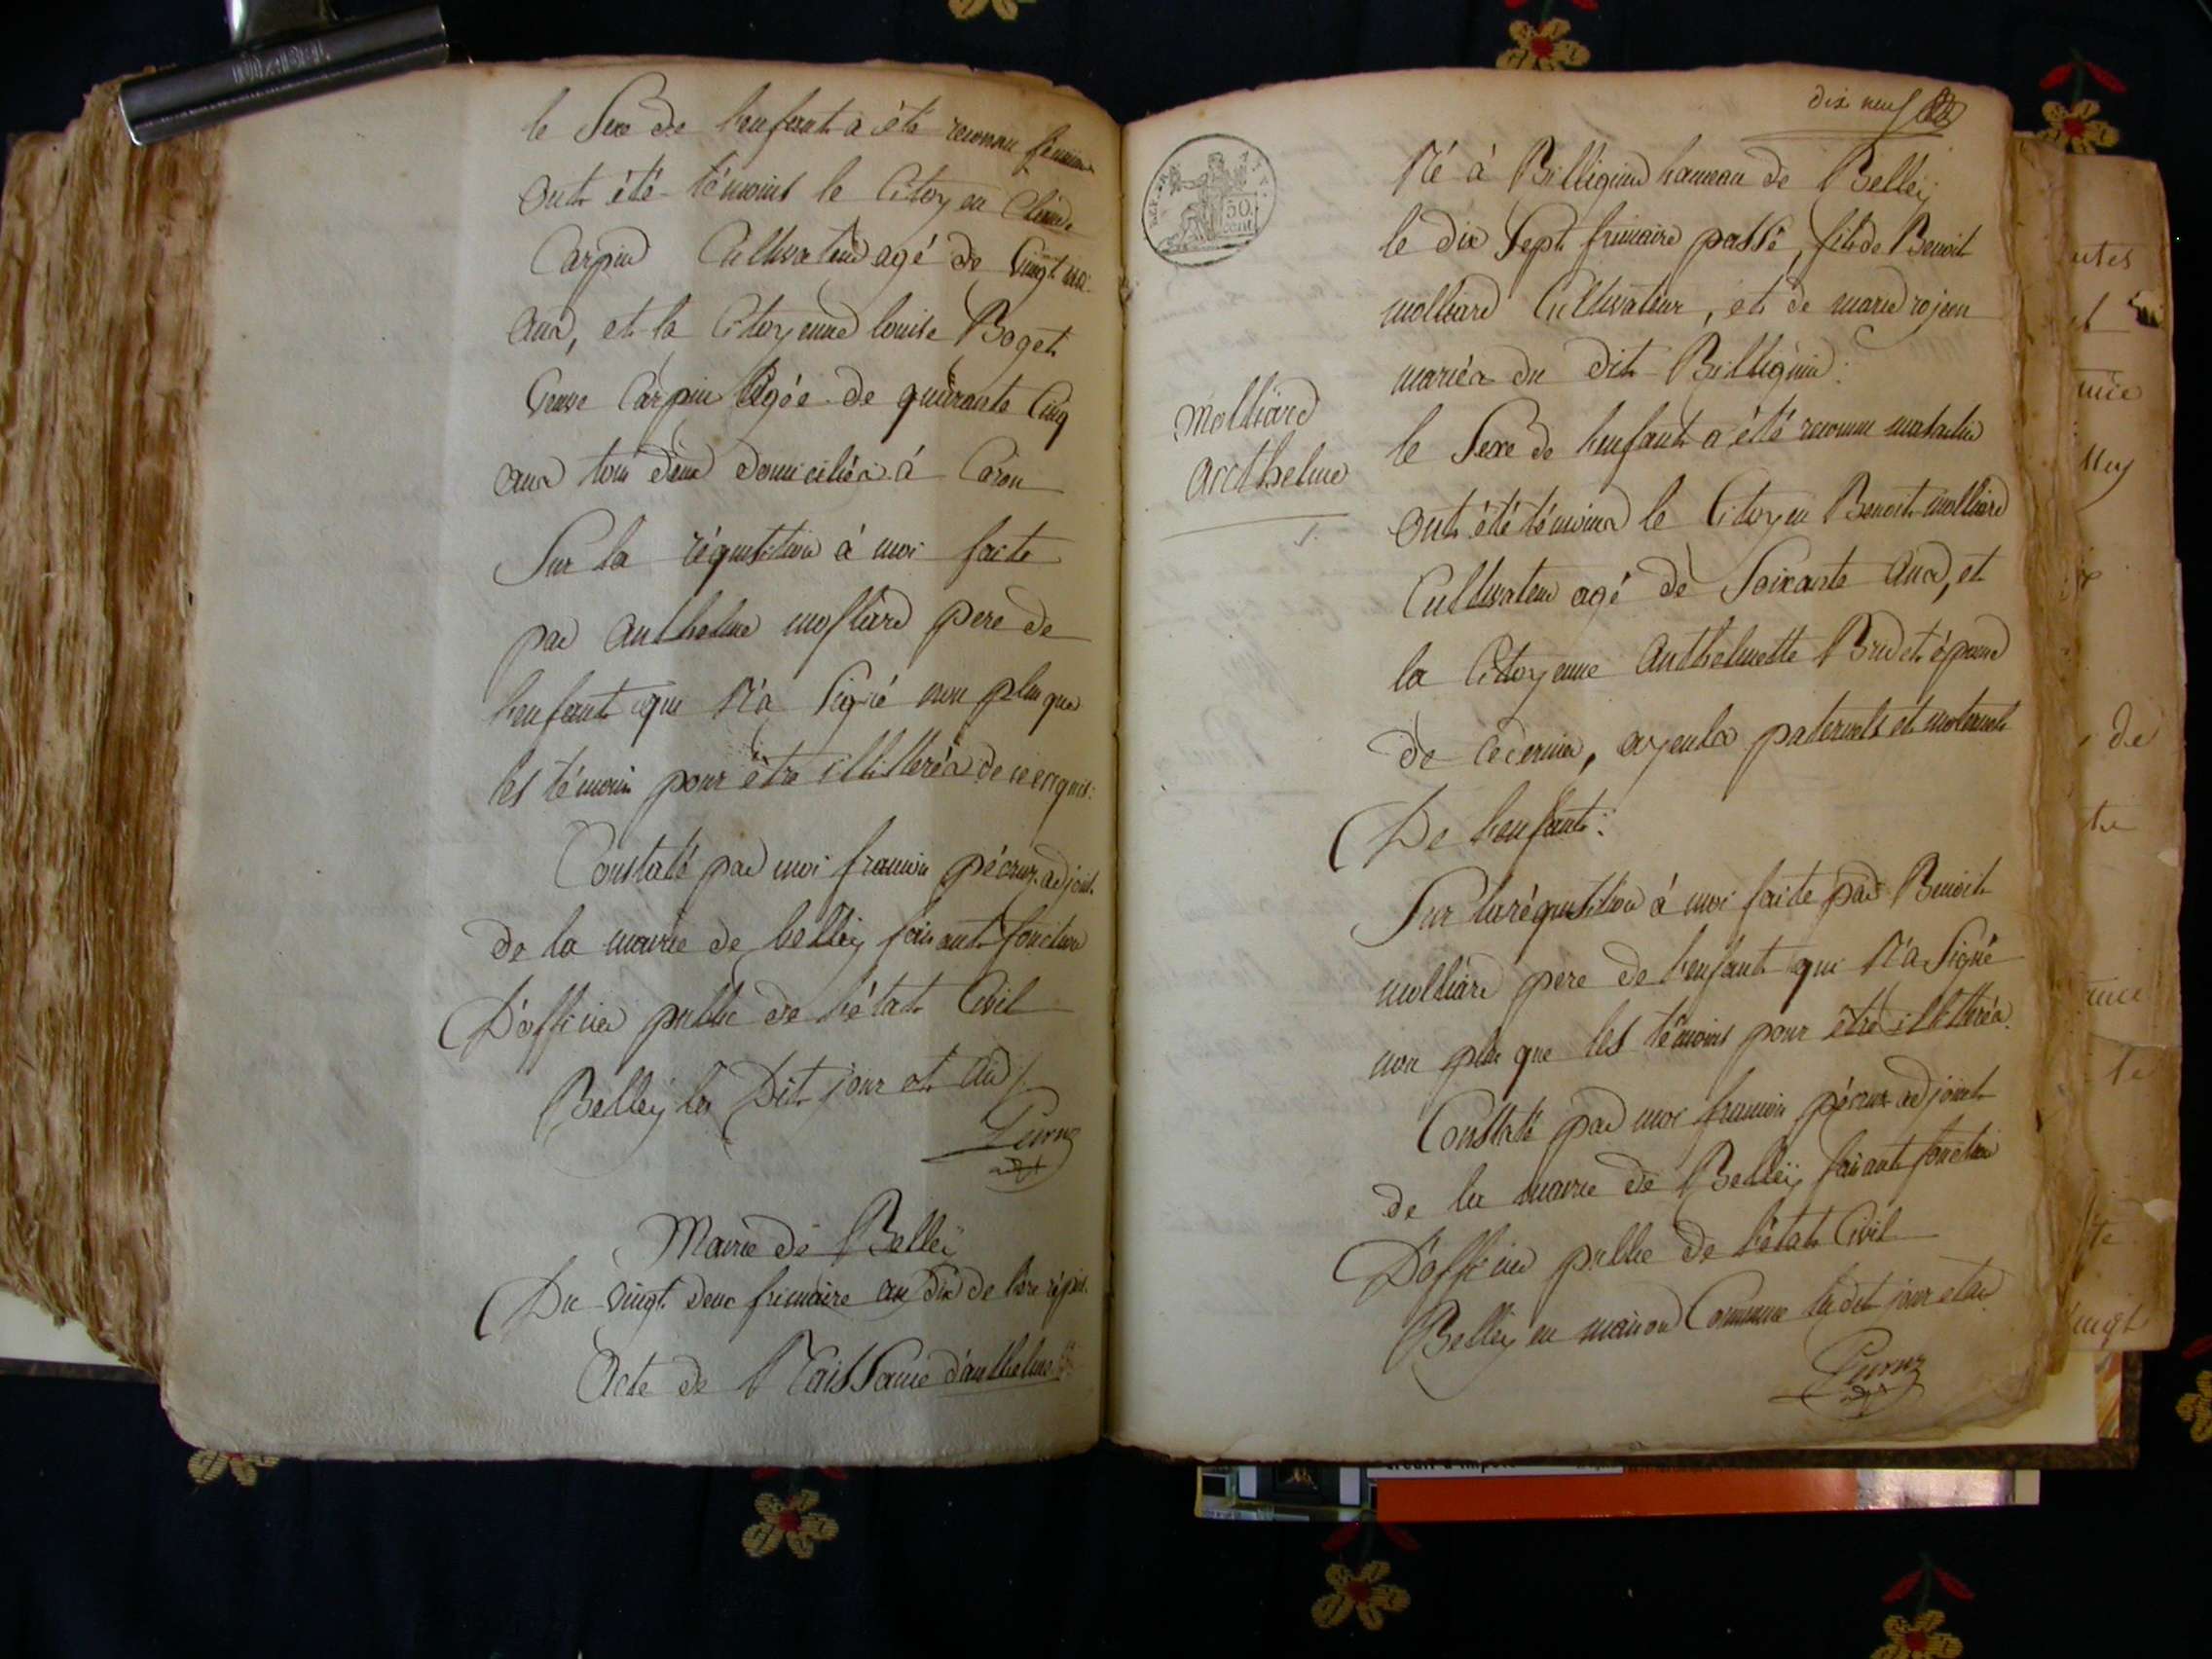 le Sexe de l'enfant a été reconnu féminin
ont été témoins le Citoyen Claude
Carpin Cultivateur agé de Vingt
ans, et la Citoyenne louise Boget
Veuve Carpin agée de quarante Cinq
ans tous deux domiciliés à Coron
Sur la réquisition à moi faite
par Anthelme molliard pere de
l'enfant qui N'a Signé non plus que
les témoins pour être illittérés de ce enquis:
Constaté par moi adjoint
de la mairie de belley faisant fonction
D'officier public de l'état Civil
Belley les Dit jour et an
Mairie de Belleÿ
Du vingt deux frimaire an dix de l'ere répub.
Acte de Naissance d'anthelme
dix neuf
50.
cent.
Né à Billignin hameau de Belley
le dix Sept frimaire passé, fils de Benoit
molliard Cultivateur, et de marie rojon
mariés du dit Billignin:
Molliard
Anthelme
le Sexe de l'enfant a été reconnu masculin
ont été témoins le Citoyen Benoit molliard
Cultivateur agé de Soixante ans, et
la Citoyenne Anthelmette Brudet épouse
de ce dernier, ayeuls paternels et maternels
De l'enfant:
Sur la réquisition à moi faite par Benoit
molliard pere de l'enfant qui N'a Signé
non plus que les témoins pour être illitérés.
Constaté par moi adjoint
de la mairie de Belleÿ faisant fonction
D'officier public de l'état Civil
Belley en maison Commune les dit jour et an
utes
et
de
te
Vingt